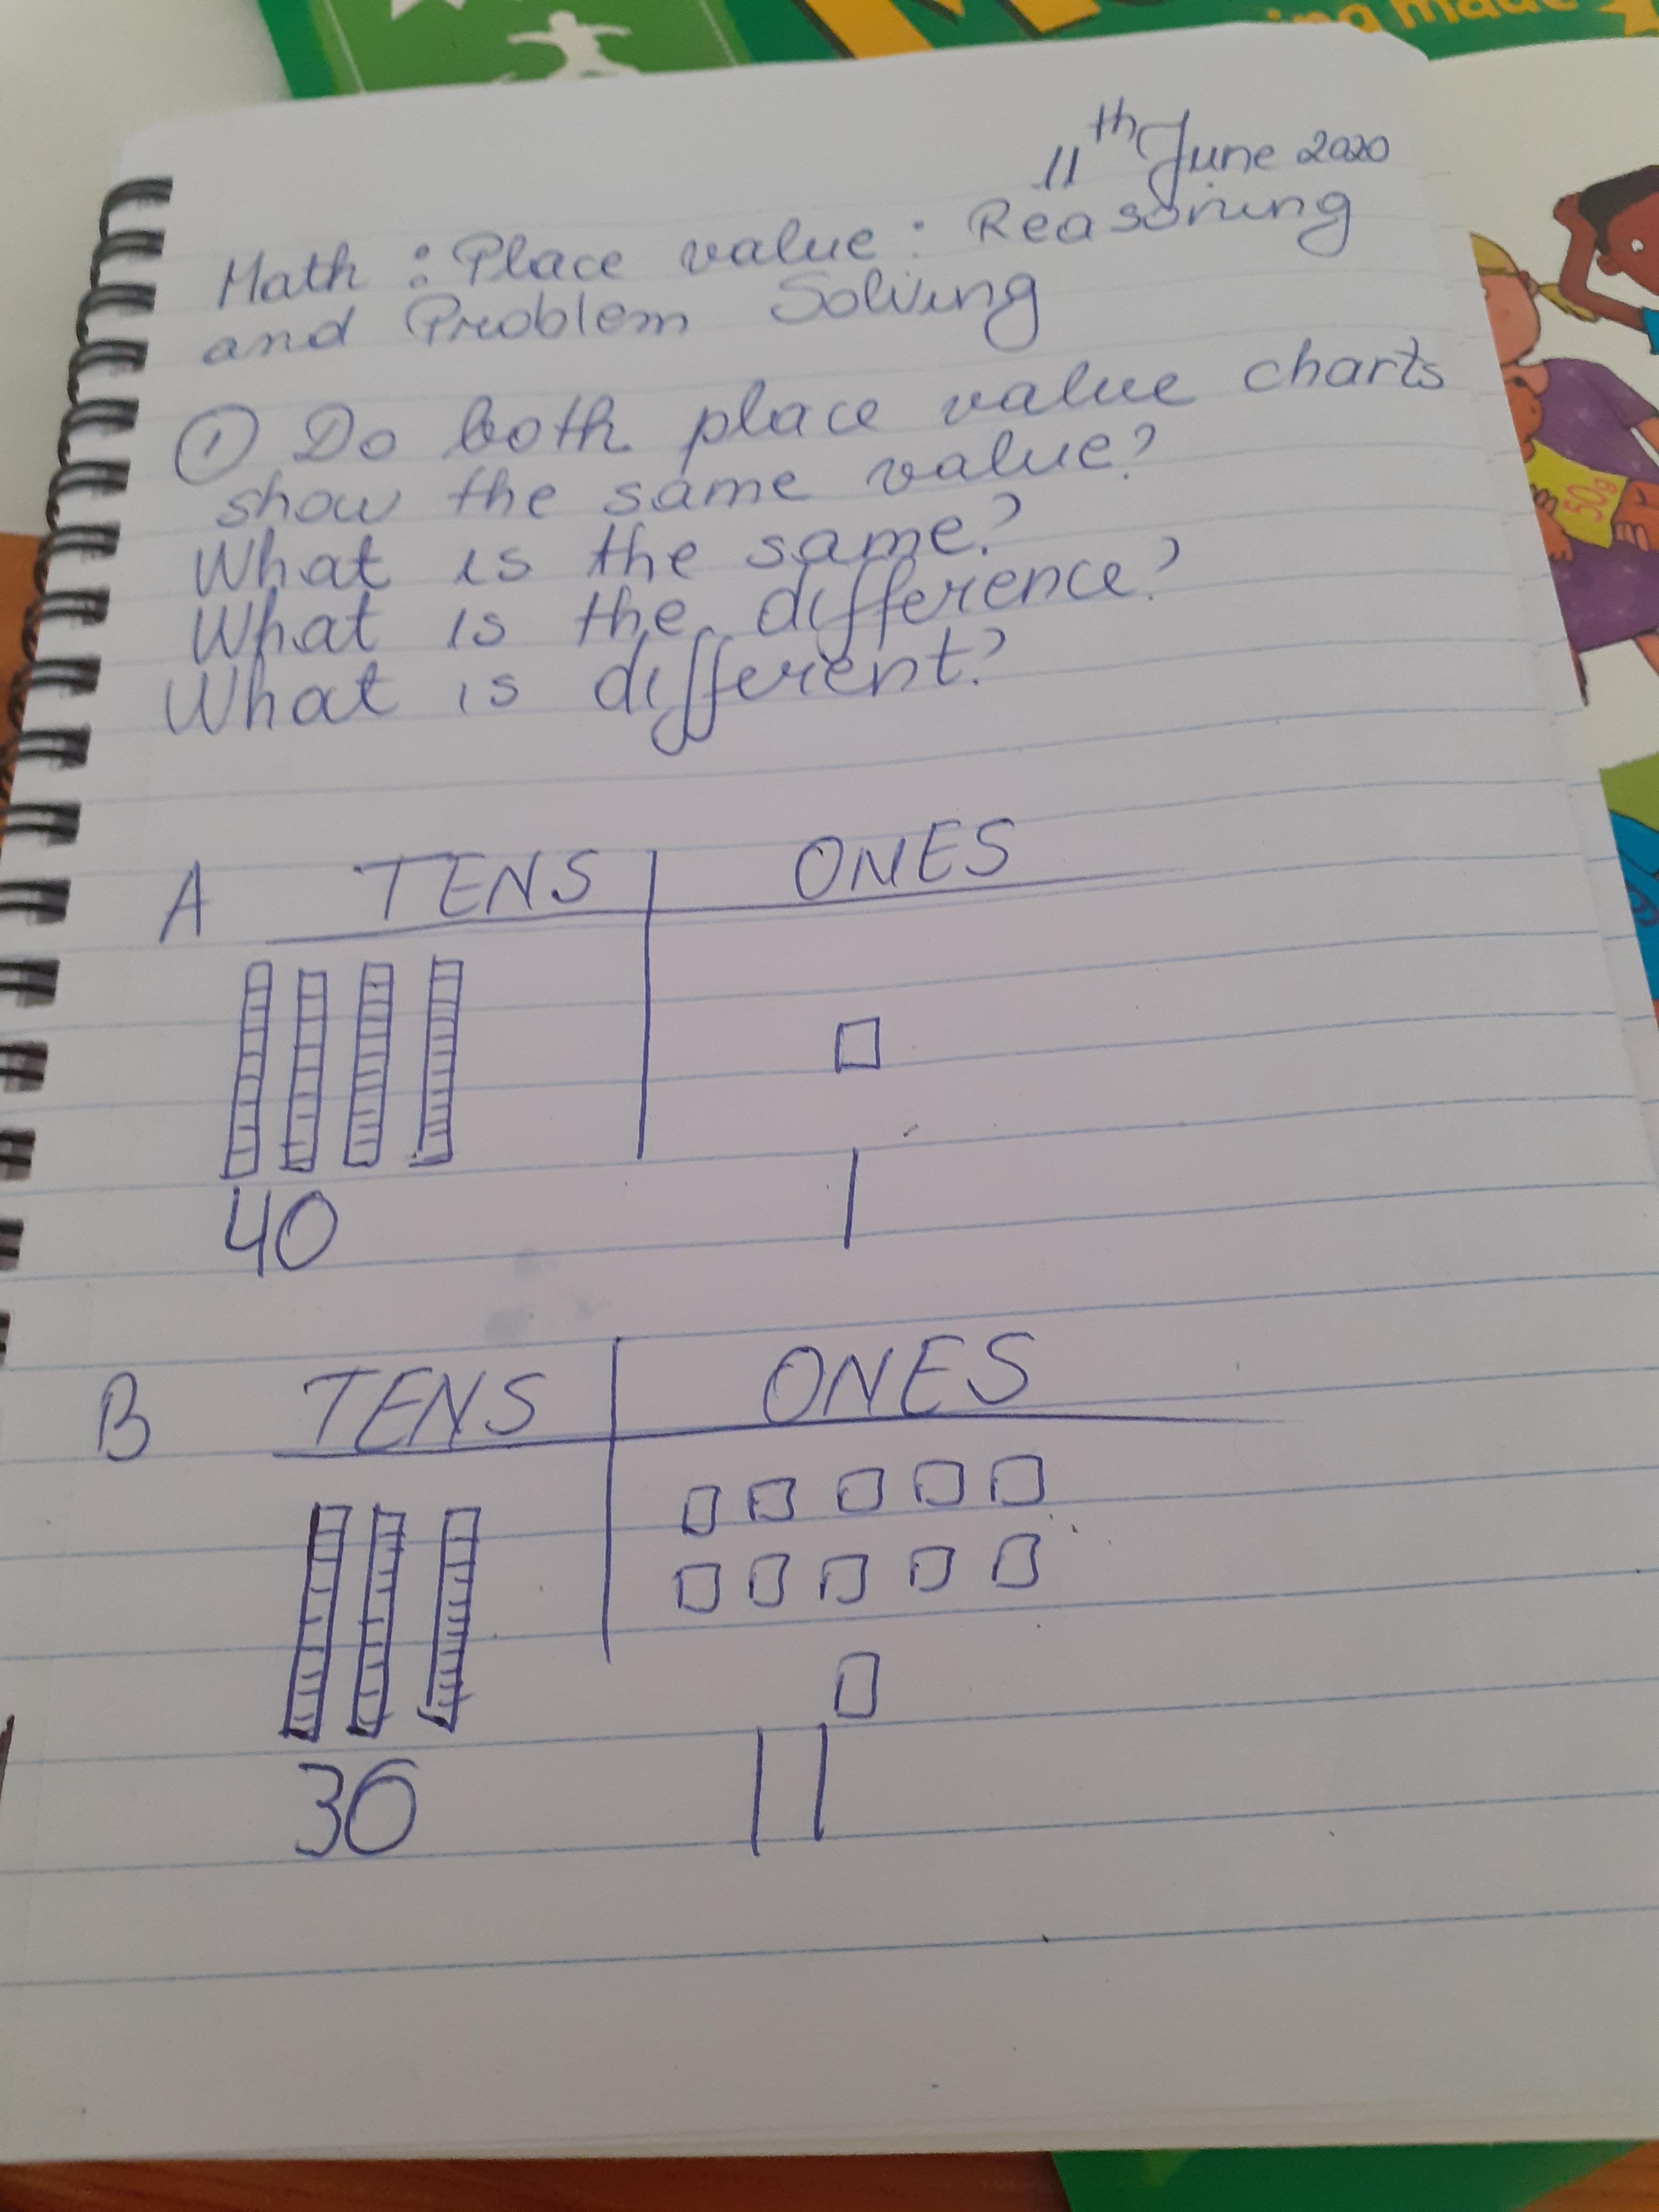 11th June 2020
Math : Place value : Reasoning
and Problem Solving
① Do both place value charts
show the same value?
What is the same?
What is the difference?
What is different?
A TENS ONES
40 1
B TENS ONES
30 11
50g